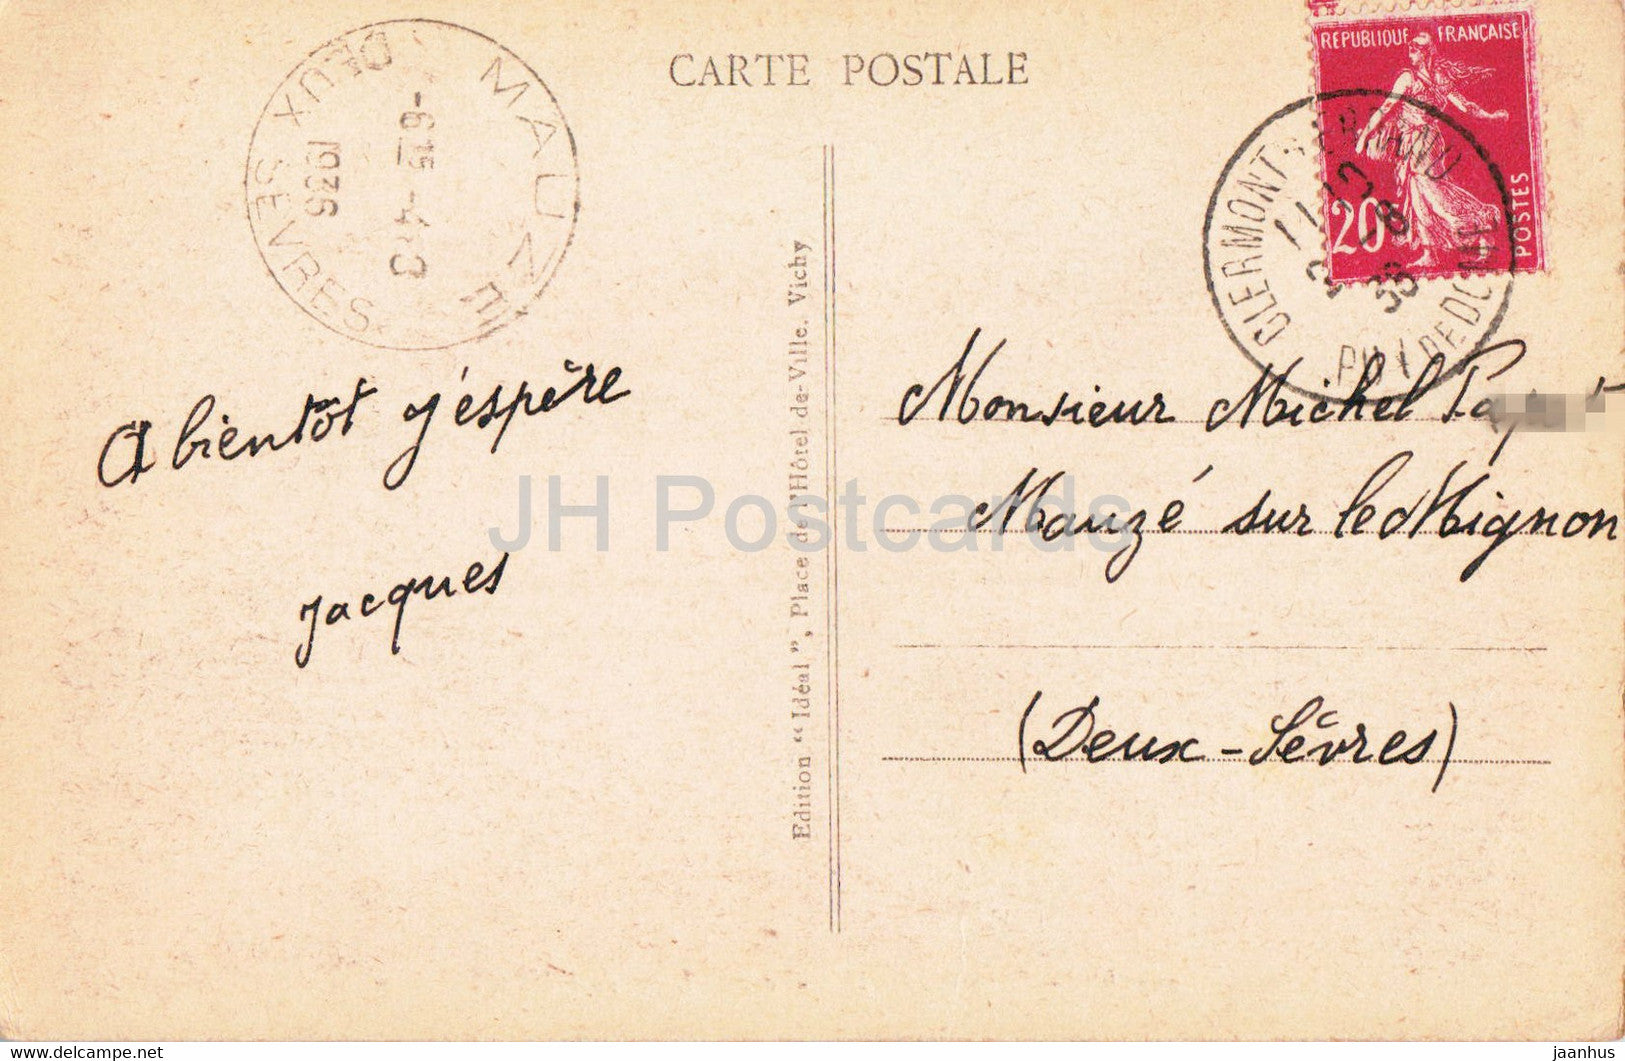 CARTE POSTALE
MAUZE
DEUX SEVRES
1936
REPUBLIQUE FRANÇAISE
20
POSTES
CLERMONT-FERRAND
PUY DE DOME
A bientôt j'éspère
Jacques
Edition “ Idéal ”, Place de l'Hôtel-de-Ville. Vichy
Monsieur Michel
Mauzé sur le Mignon
(Deux-Sèvres)
JH Postcards
delcampe.net
jaanhus